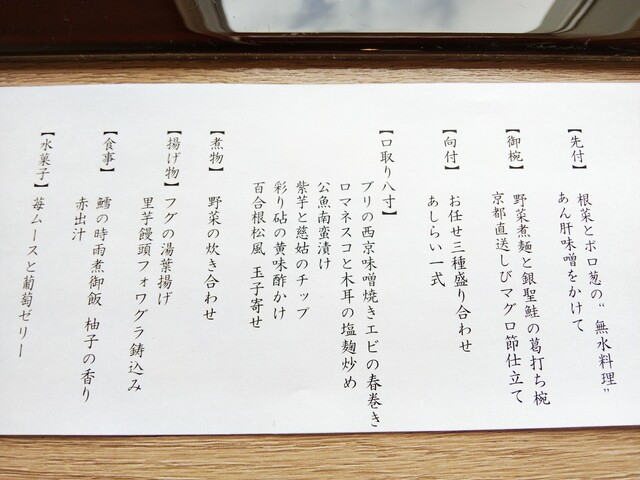 【先付】
根菜とポロ葱の“無水料理”
あん肝味噌をかけて
【御椀】
野菜煮麺と銀聖鮭の葛打ち椀
京都直送しびマグロ節仕立て
【向付】
お任せ三種盛り合わせ
あしらい一式
【口取り八寸】
ブリの西京味噌焼きエビの春巻き
ロマネスコと木耳の塩麹炒め
公魚南蛮漬け
紫芋と慈姑のチップ
彩り砧の黄味酢かけ
百合根松風 玉子寄せ
【煮物】
野菜の炊き合わせ
【揚げ物】
フグの湯葉揚げ
里芋饅頭フォワグラ鋳込み
【食事】
鱈の時雨煮御飯 柚子の香り
赤出汁
【水菓子】
苺ムースと葡萄ゼリー